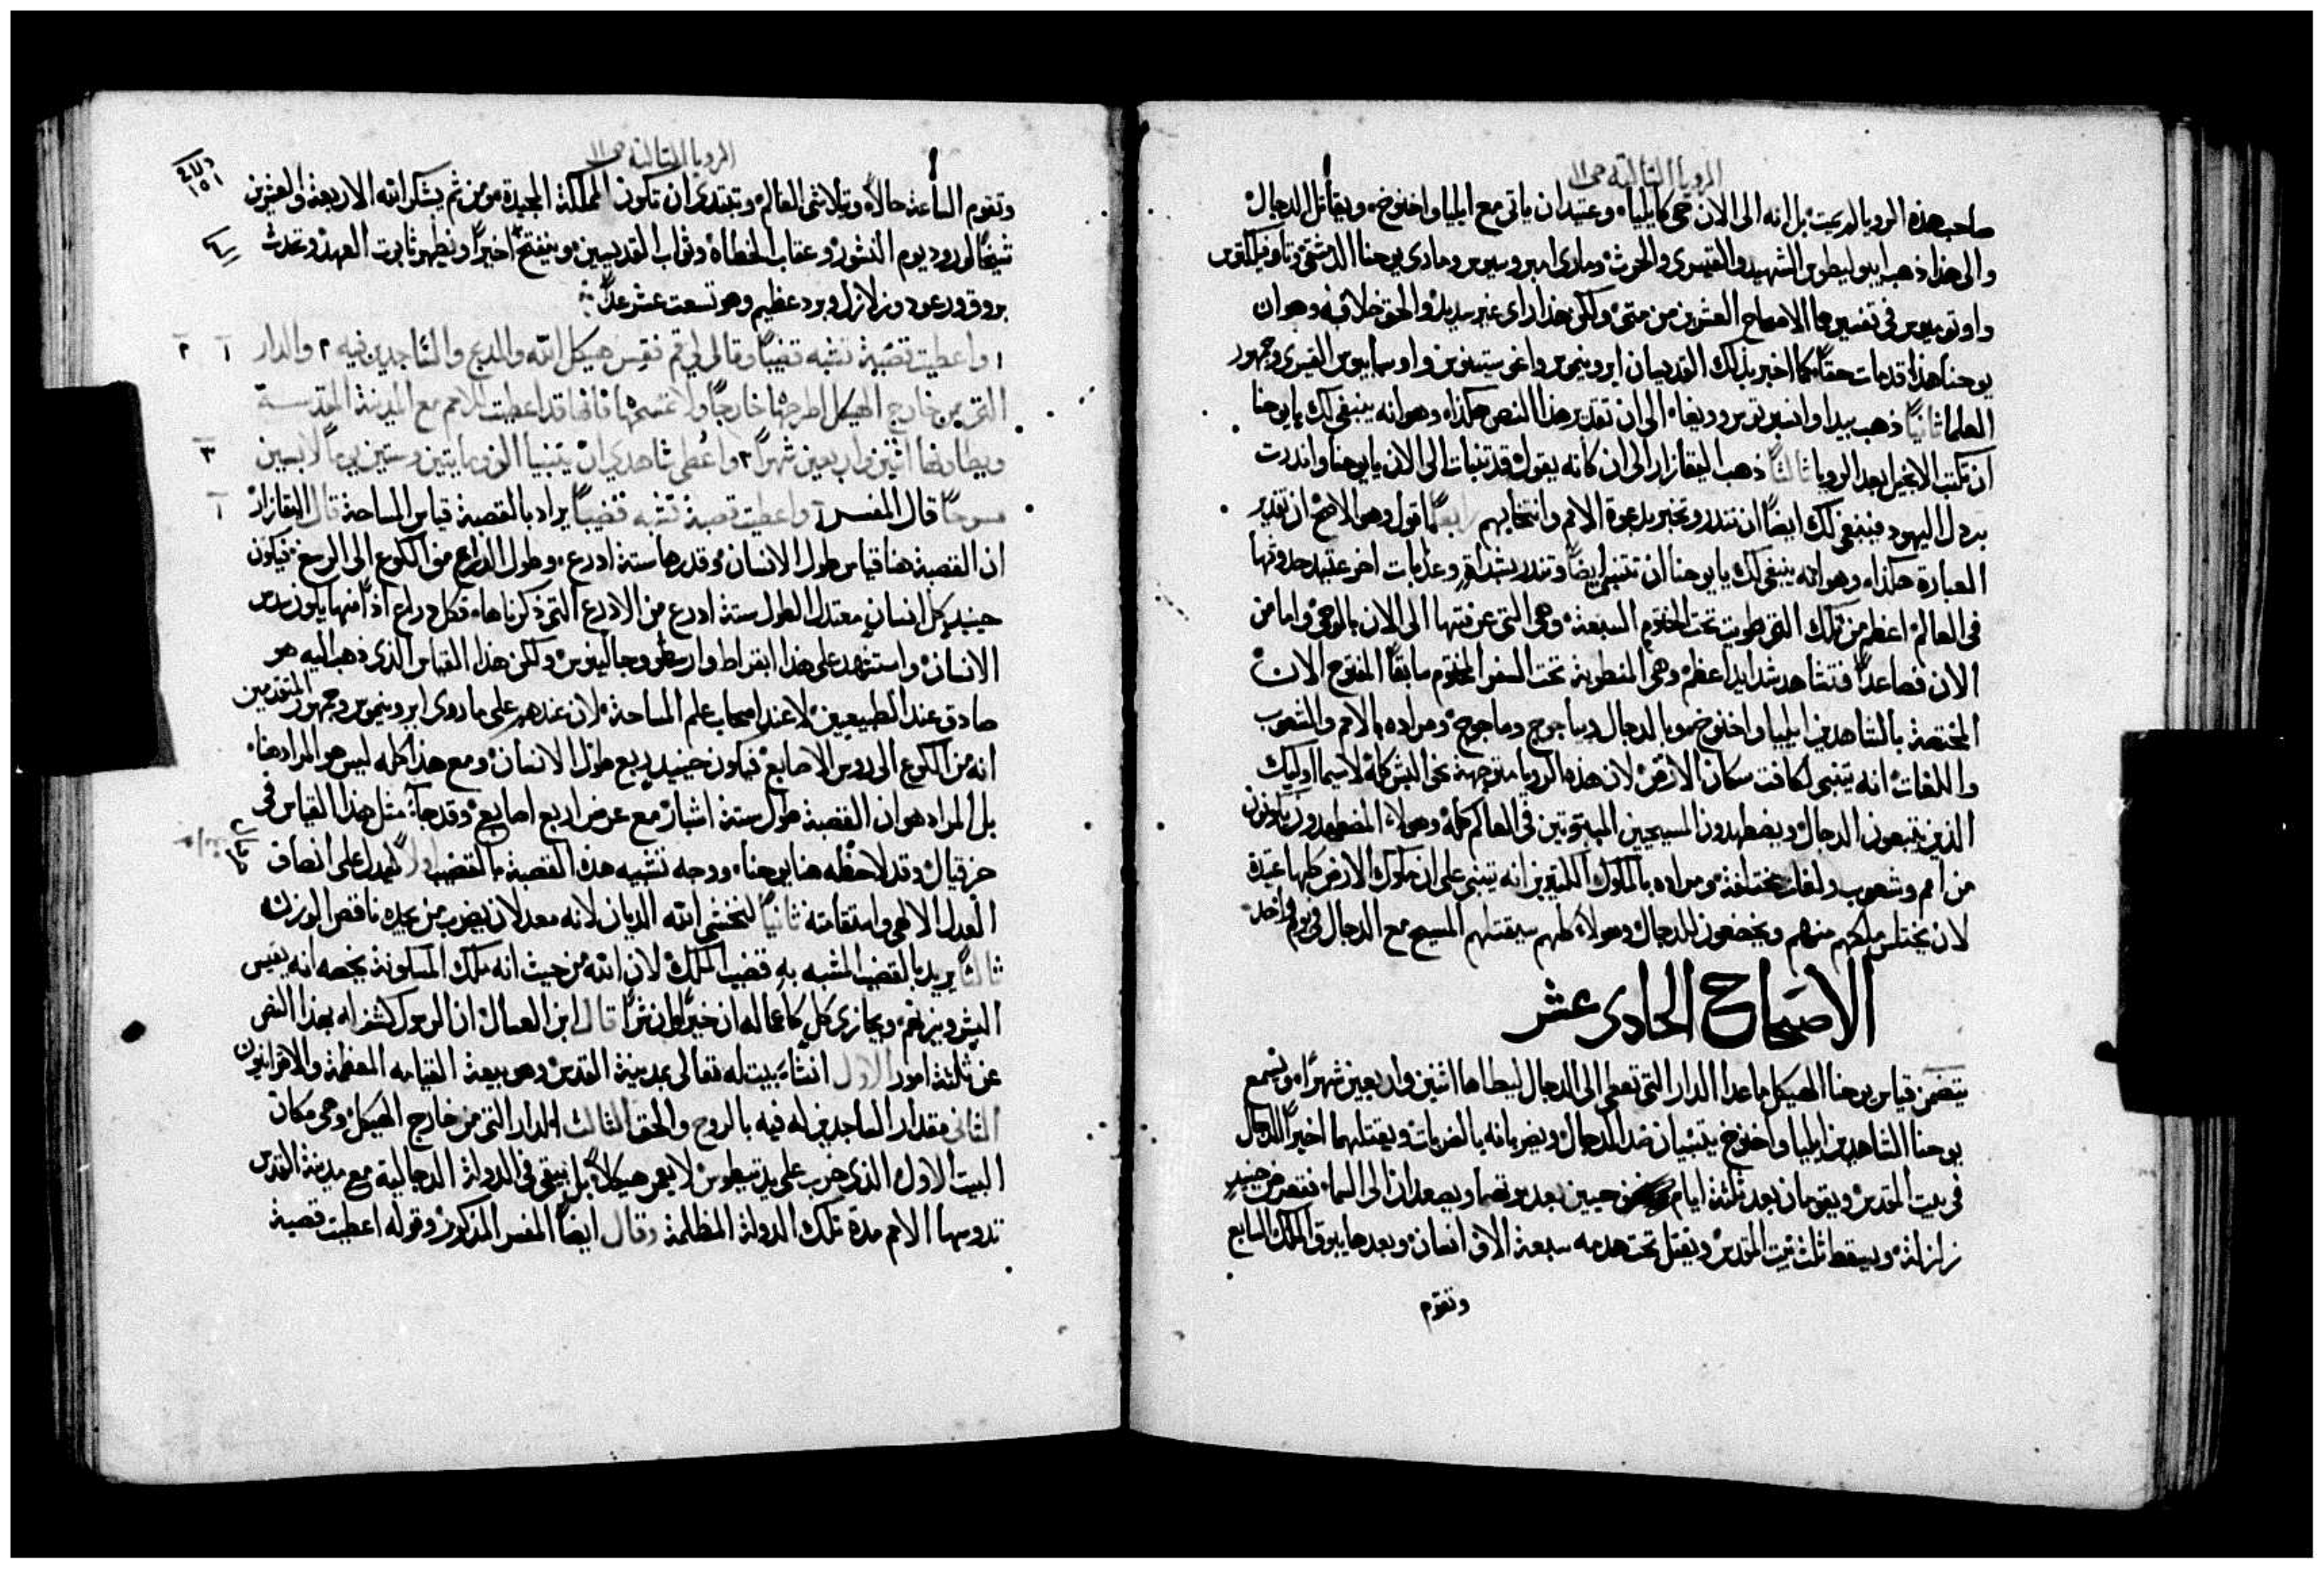 الرويا الثالثة ص ١١
صاحب هذه الرويا لم يمت بل انه الى الان حي كايليا وعتيد ان ياتي مع ايليا واخنوخ ويقاتل الدجال
والى هذا ذهب ايبوليطوس الشهيد والقيسري والحوت ومادى امبروسيوس ومادى يوحنا الدمشقي وتاوفيلكتوس
واوتوميوس في تفسيرها الاصحاح العشرين من متى ولكن هذا راى غير سديد والحق خلافه وهو ان
يوحنا هذا قد مات حقًا كما اخبر بذلك القديسان ايرونيموس واغوستينوس واوسابيوس القيسري وجمهور
العلما ثانيًا ذهب بيدا وانسبرتوس وريفاه الى ان تقدير هذا النص هكذا وهو انه ينبغي لك يا يوحنا
ان تكتب الانجيل بعد الرويا ثالثًا ذهب اليقازار الى ان كانه يقول قد تنبات الى الان يا يوحنا وانذرت
بردل اليهود فينبغي لك ايضًا ان تنذر وتخبر بدعوة الامم وانتخابهم رابعًا اقول وهو الاصح ان تقدير
العبارة هكذا وهو انه ينبغي لك يا يوحنا ان تتنبى ايضًا وتنذر بشدايد وعذابات اخر عتيد حدوثها
في العالم اعظم من تلك التي طويت تحت الختوم السبعة وهي التي عرفتها الى الان بالوحي واما من
الان فصاعدًا فتشاهد شدايد اعظم وهي المنطوية تحت السفر المختوم سابقًا المفتوح الان
المختصة بالشاهدين ايليا واخنوخ وبالدجال وبياجوج وماجوج ومراده بالامم والشعوب
واللغات انه يتنبى لكافة سكان الارض لان هذه الرويا متوجهة نحو البشر كله لاسيما اوليك
الذين يتبعون الدجال ويضطهدون المسيحيين المبثوثين في العالم كله وهولاء المضطهدون يكونون
من امم وشعوب ولغات مختلفة ومراده بالملوك الكثيرين انه يتنبى على ان ملوك الارض كلها عتيدة
لان يختلس ملكهم منهم ويخضعون للدجال وهولاء كلهم سيقتلهم المسيح مع الدجال في يوم واحد
الاصحاح الحادى عشر
يتضمن قياس يوحنا الهيكل ما عدا الدار التي تعطى الى الدجال ليطاها اثنين واربعين شهرًا ونسمع
يوحنا الشاهدين ايليا واخنوخ يتنبيان ضد الدجال ويضربانه بالضربات ويقتلهما اخيرًا الدجال
في بيت المقدس ويقومان بعد ثلثة ايام حيين بعد موتهما ويصعدان الى السما فتعرض حينيذٍ
زلزلة ويسقط ثلث بيت المقدس ويقتل تحت هدمه سبعة الاف انسان وبعدها يبوق الملاك السابع
وتقوم
الرويا الثالثة ص ١١
وتقوم الساعة حالًا ويتلاشى العالم وتبتدى ان تكون المملكة المجيدة ومن ثم يشكر الله الاربعة والعشرين
شيخًا لورود يوم النشور وعقاب الخطاه وثواب القديسين وينفتح اخيرًا ويظهر تابوت العهد وتحدث
بروق ورعود وزلازل وبرد عظيم وهو تسعت عشر عددًا
١ واعطيت قصبة تشبه قضيبًا وقال لي قم فقس هيكل الله والمذبح والساجدين فيه ٢ والدار
التي من خارج الهيكل اطرحها خارجًا ولا تمسحها فانها قد اعطيت للامم مع المدينة المقدسة
ويطاونها اثنين واربعين شهرًا ٣ واعطى شاهدي ان يتنبيا الف ومايتين وستين يومًا لابسين
مسوحًا قال المفسر ١ واعطيت قصبة تشبه قضيبًا يراد بالقصبة قياس المساحة قال اليقازار
ان القصبة هنا قياس طول الانسان وقدرها ستة اذرع وطول الذراع من الكوع الى الرسغ فيكون
حينيذٍ كل انسان معتدل الطول ستة اذرع من الاذرع التي ذكرناها فكل ذراع اذًا منها يكون سدس
الانسان واستشهد على هذا ابقراط وارسطو وجالينوس ولكن هذا القياس الذي ذهب اليه هو
صادق عند الطبيعيين لا عند اصحاب علم المساحة لان عندهم على ما روى ايرونيموس وجمهور المتقدمين
انه من الكوع الى روس الاصابع فيكون حينيذٍ ربع طول الانسان ومع هذا كله ليس هو المراد هنا
بل المراد هو ان القصبة طول ستة اشبار مع عرض اربع اصابع وقد جاء مثل هذا القياس في
حزقيال وقد لاحظه هنا يوحنا ووجه تشبيه هذه القصبة بالقضيب اولًا ليدل على انصاف
العدل الالهي واستقامته ثانيًا لنخشى الله الديان لانه معد لان يضرب من يجده ناقص الوزن
ثالثًا يريد بالقضيب المشبه به قضيب الملك لان الله من حيث انه ملك المسكونة يخصه انه يقيس
البشر ويزنهم ويجازي كل كاعماله ان خيرًا وان شرًا قال ابن العسال ان الرسول كشف له بهذا النص
عن ثلثة امور الاول انشاء بيت له تعالى بمدينة القدس وهو بيعة القيامه المعظمة والاقرانيون
الثاني مقدار الساجدين له فيه بالروح والحق الثالث الدار التي من خارج الهيكل وهي مكان
البيت الاول الذي خرب على يد تيطوس لا يعمر هيكلًا بل يبقى في الدولة الدجالية مع مدينة القدس
تدوسها الامم مدة تلك الدولة المظلمة وقال ايضًا المفسر المذكور وقوله اعطيت قصبة